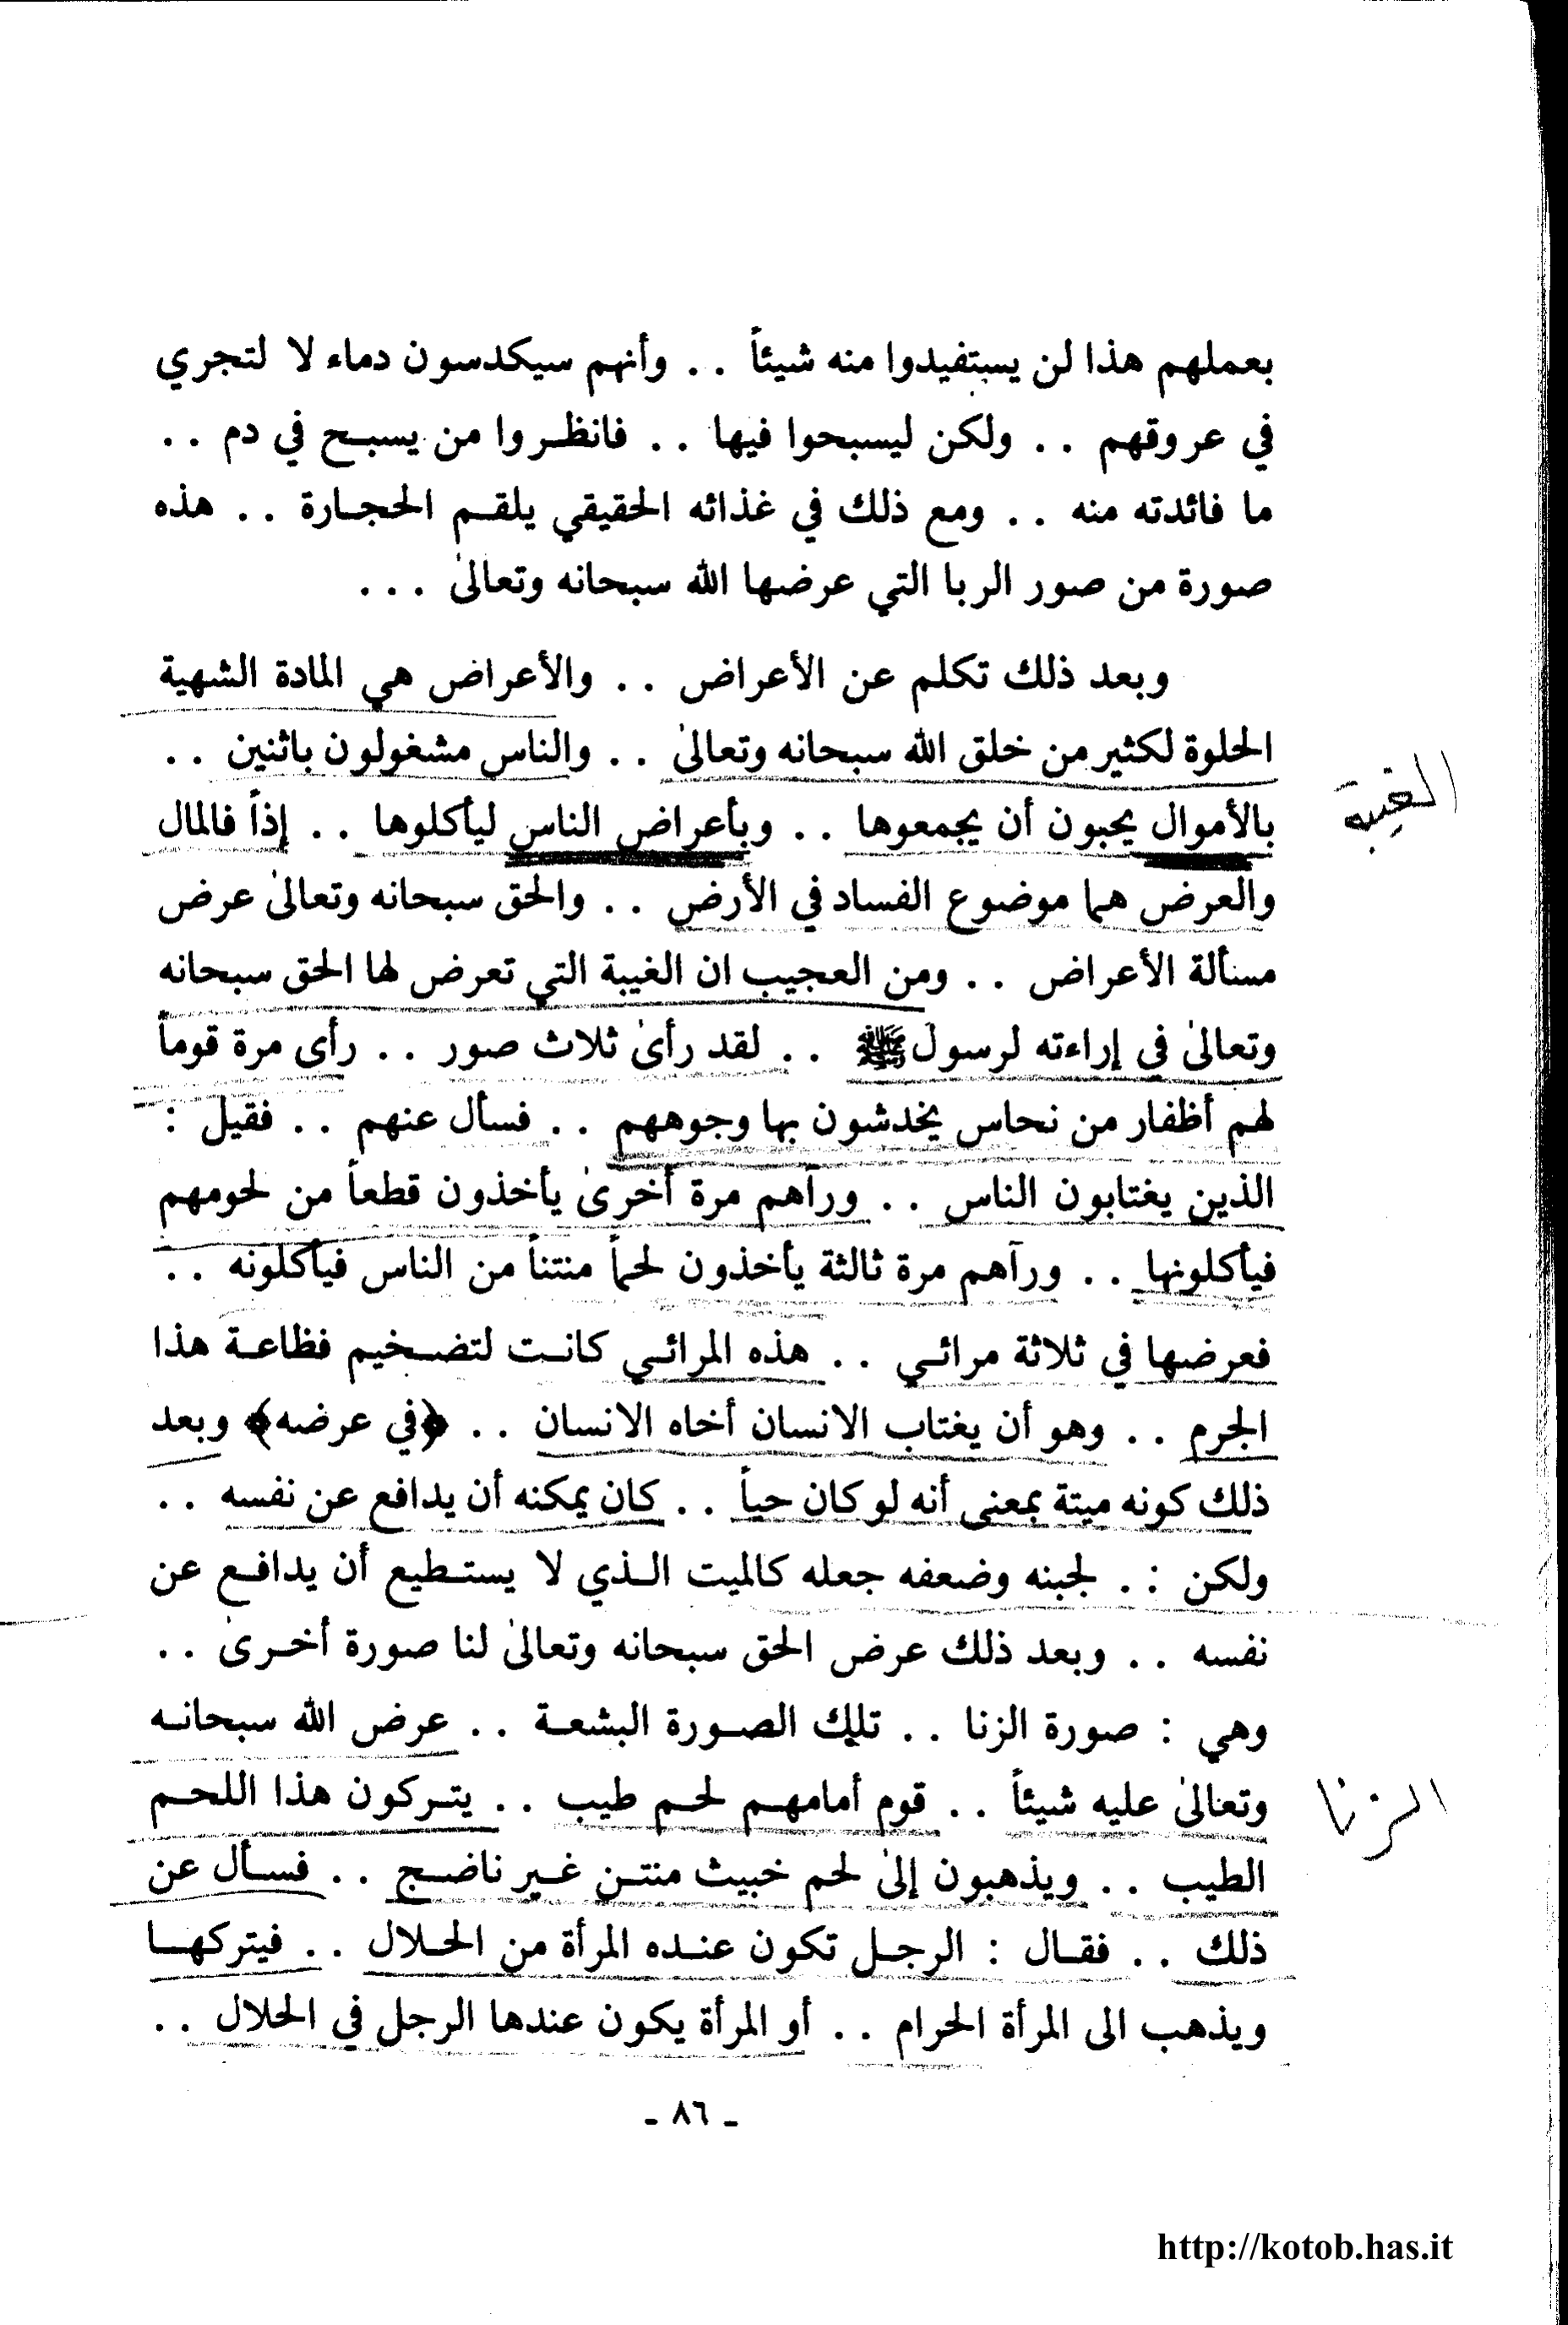 بعملهم هذا لن يستفيدوا منه شيئاً . . وأنهم سيكدسون دماء لا لتجري
في عروقهم . . ولكن ليسبحوا فيها . . فانظروا من يسبح في دم . .
ما فائدته منه . . ومع ذلك في غذائه الحقيقي يلقم الحجارة . . هذه
صورة من صور الربا التي عرضها الله سبحانه وتعالىٰ . . .
وبعد ذلك تكلم عن الأعراض . . والأعراض هي المادة الشهية
الحلوة لكثير من خلق الله سبحانه وتعالىٰ . . والناس مشغولون باثنين . .
الغيبة
بالأموال يحبون أن يجمعوها . . وبأعراض الناس ليأكلوها . . إذاً فالمال
والعرض هما موضوع الفساد في الأرض . . والحق سبحانه وتعالىٰ عرض
مسألة الأعراض . . ومن العجيب ان الغيبة التي تعرض لها الحق سبحانه
وتعالىٰ في إراءته لرسول ﷺ . . لقد رأىٰ ثلاث صور . . رأى مرة قوماً
لهم أظفار من نحاس يخدشون بها وجوههم . . فسأل عنهم . . فقيل :
الذين يغتابون الناس . . ورآهم مرة أخرىٰ يأخذون قطعاً من لحومهم
فيأكلونها . . ورآهم مرة ثالثة يأخذون لحماً منتناً من الناس فيأكلونه . .
فعرضها في ثلاثة مرائي . . هذه المرائي كانت لتضخيم فظاعة هذا
الجرم . . وهو أن يغتاب الانسان أخاه الانسان . . ﴿في عرضه﴾ وبعد
ذلك كونه ميتة بمعنى أنه لو كان حياً . . كان يمكنه أن يدافع عن نفسه . .
ولكن : . لجبنه وضعفه جعله كالميت الذي لا يستطيع أن يدافع عن
نفسه . . وبعد ذلك عرض الحق سبحانه وتعالىٰ لنا صورة أخرىٰ . .
وهي : صورة الزنا . . تلك الصورة البشعة . . عرض الله سبحانه
الزنا
وتعالىٰ عليه شيئاً . . قوم أمامهم لحم طيب . . يتركون هذا اللحم
الطيب . . ويذهبون إلىٰ لحم خبيث منتن غير ناضج . . فسأل عن
ذلك . . فقال : الرجل تكون عنده المرأة من الحلال . . فيتركها
ويذهب الى المرأة الحرام . . أو المرأة يكون عندها الرجل في الحلال . .
ـ ٨٦ ـ
http://kotob.has.it